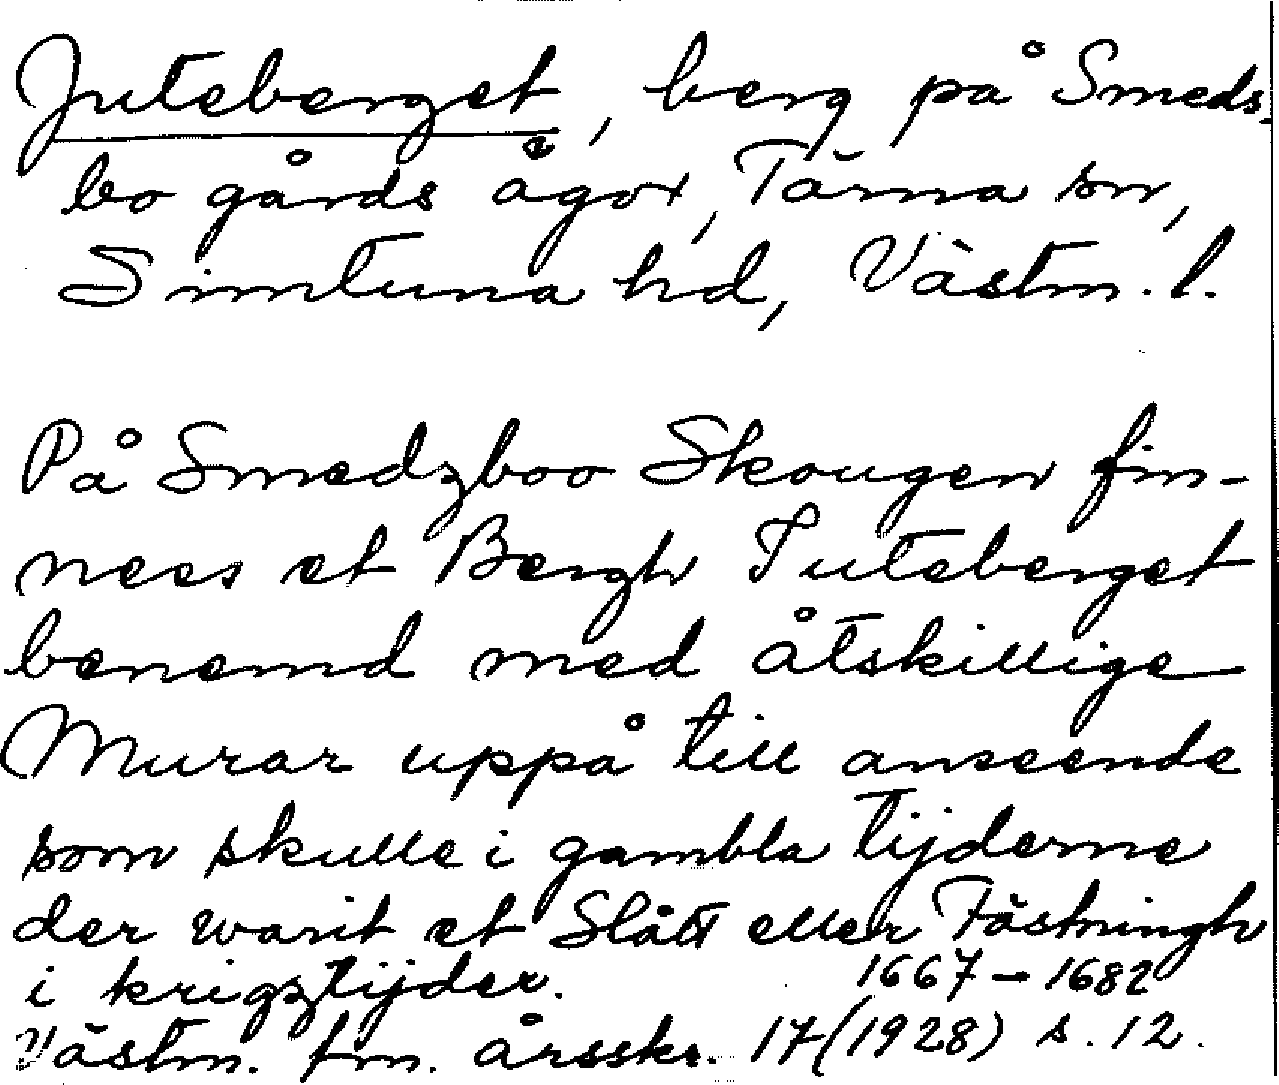 Juteberget, berg på Smeds-
bo gårds ägor, Tärna sn,
Simtuna hd, Västm. l.
På Smedzboo Skougen fin-
nees et Bergh Juteberget
benemd med åtskillige
Murar uppå till anseende
som skulle i gambla tijderne
der warit et Slått eller Fästningh
i krigztijder. 1667-1682
Västm. fm. årsskr. 17(1928) s. 12.